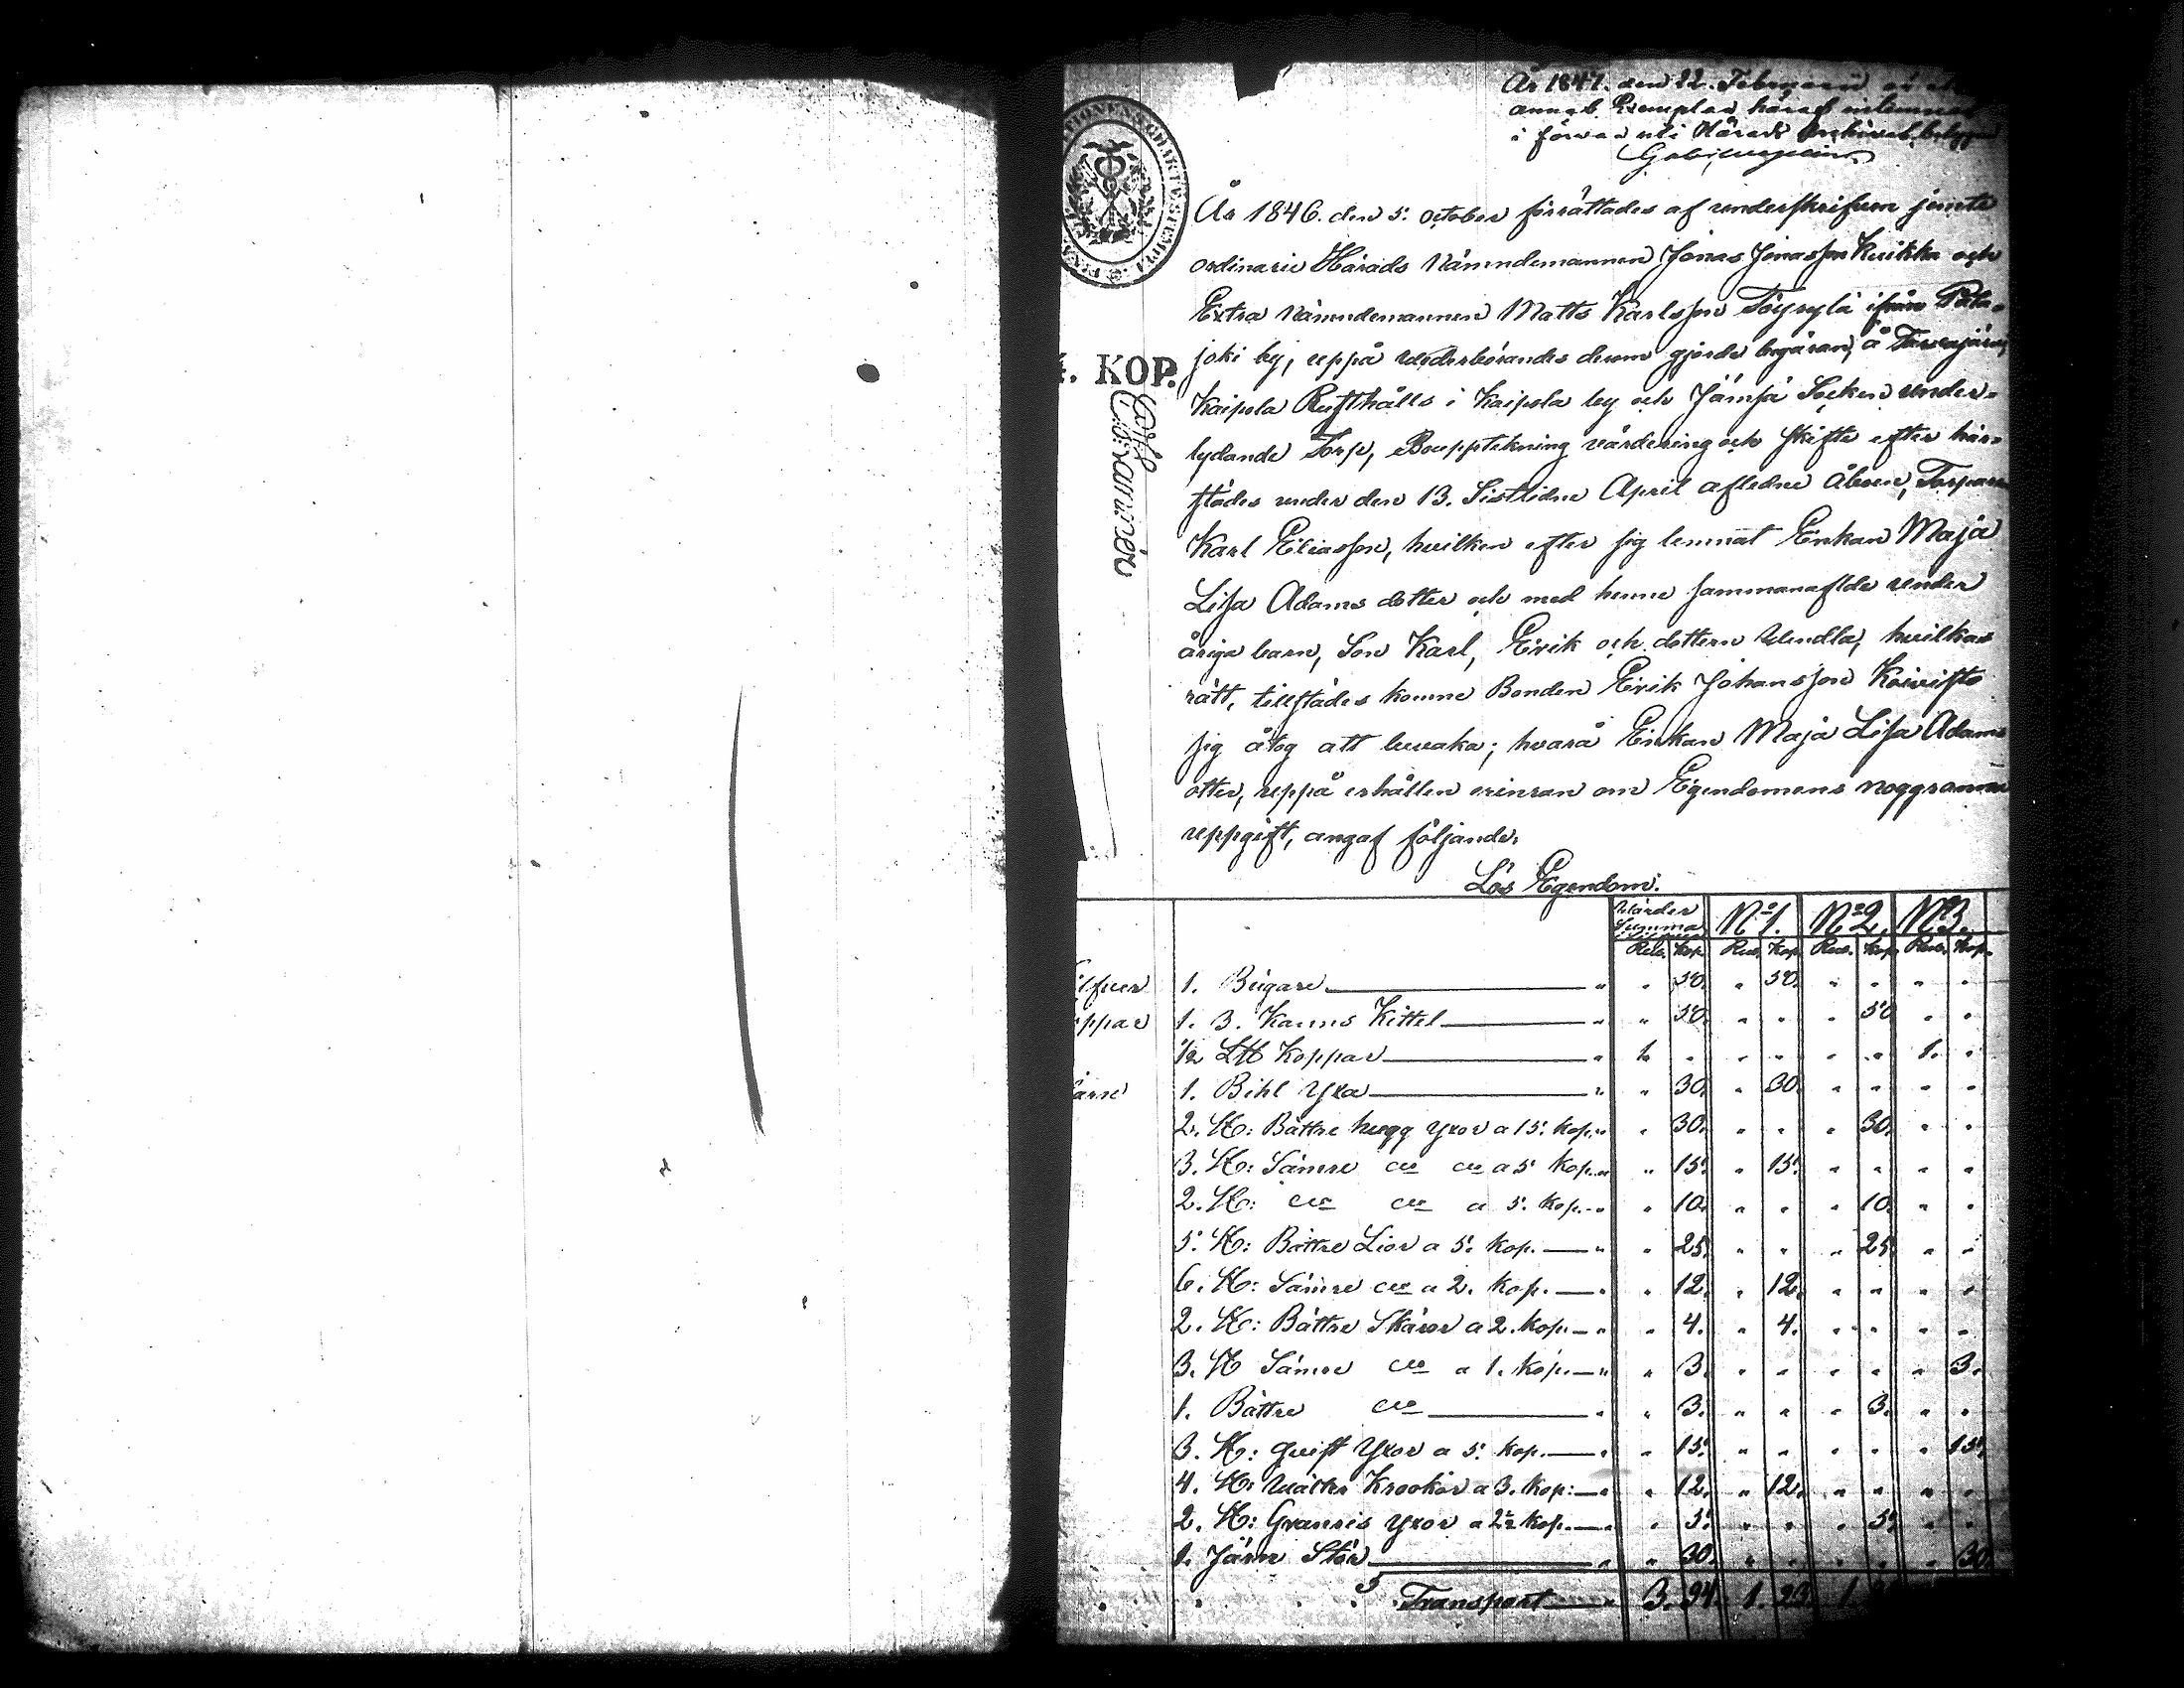 År 1847. den 22. Februarii
annat Exemplar häraf inlemnad
i förvar uti Härads Archivet,
År 1846. den 5. October förrättades af underskrifven jemte
ordinarie Härads Nämndemannen Jonas Jonasson Kuikka och
Extra Nämndemannen Matts Karlsson Töyrylä ifrån Pata-
joki by, uppå vederbörandes derom gjorde begäran, å
Kaipola Rusthålls i Kaipola by och Jämsä Socken under-
lydande Torp, Bouppteckning värdering och skifte efter här-
städes under den 13. Sistlidne April aflidne Åboen, Torparen
Karl Eliasson, hvilken efter sig lemnat Enkan Maja
Lisa Adams dotter och med henne sammanaflde under
åriga barn, Son Karl, Erik och dottern Wendla, hvilkas
rätt, tillstädes komne Bonden Erik Johansson Koivisto
sig åtog att bevaka; hvarå Enkan Maja Lisa Adams
otter, uppå erhållen erinran om Egendomens noggranna
uppgift, angaf följande.
4. KOP.
Lös Egendom.
Värder Summa No 1. No 2. No 3.
Rub. Kop. Rub. Kop. Rub. Kop. Rub. Kop.
ilfver 1. Bägare " " 50. " 50. " " " "
oppar 1. 3. Kanns Kittel " " 50. " " " 50 " "
1/2 L℔ Koppar " 1. " " " " " 1. "
ärne 1. Bihl Yxa " " 30. " 30. " " " "
2. St: Bättre hugg Yxor a 15. kop. " " 30. " " " 30. " "
3. St: Sämre do do a 5 kop. " " 15. " 15. " " " "
2. St: do do a 5. kop. " " 10. " " " 10. " "
5. St: Bättre Lior a 5. kop. " " 25. " " " 25. " "
6. St: Sämre do a 2. kop. " " 12. " 12. " " " "
2. St: Bättre Skäror a 2. kop. " " 4. " 4. " " " "
3. St Sämre do a 1. kop. " " 3. " " " " " 3.
1. Bättre do " " 3. " " " 3. " "
3. St: qvist Yxor a 5. kop. " " 15. " " " " " 15.
4. St: Krookar a 3. kop: " " 12. " 12. " " " "
2. St: Granris Yxor a 2½ kop. " " 5. " " " 5. " "
1. Järn Stör " " 30. " " " " " 30.
Transport 3. 94. 1. 23. 1.